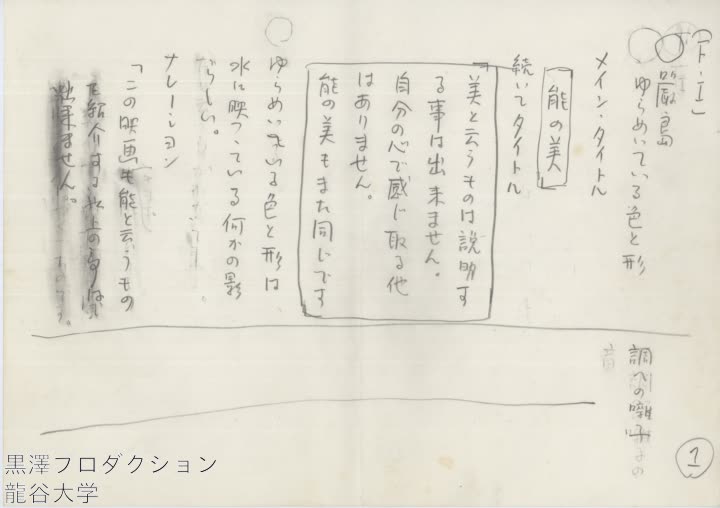 (F・I)
厳島
ゆらめいている色と形
メイン・タイトル
能の美
続いてタイトル
「美と云うものは説明す
る事は出来ません。
自分の心で感じ取る他
はありません。
能の美もまた同じです
ゆらめいている色と形は
水に映っている何かの影
らしい。
ナレーション
「この映画も能と云うもの
を紹介する以上の事は
出来ません。
調べの囃子
1
黒澤プロダクション
龍谷大学